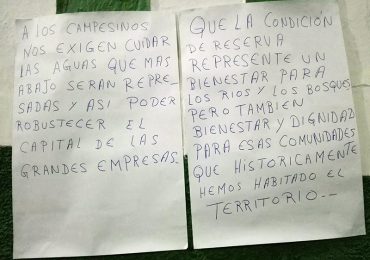 A LOS CAMPESINOS
NOS EXIGEN CUIDAR
LAS AGUAS QUE MAS
ABAJO SERAN REPRE-
SADAS Y ASI PODER
ROBUSTECER EL
CAPITAL DE LAS
GRANDES EMPRESAS.
QUE LA CONDICIÓN
DE RESERVA
REPRESENTE UN
BIENESTAR PARA
LOS RIOS Y LOS BOSQUES
PERO TAMBIEN
BIENESTAR y DIGNIDAD
PARA ESAS COMUNIDADES
QUE HISTORICAMENTE
HEMOS HABITADO EL
TERRITORIO.--